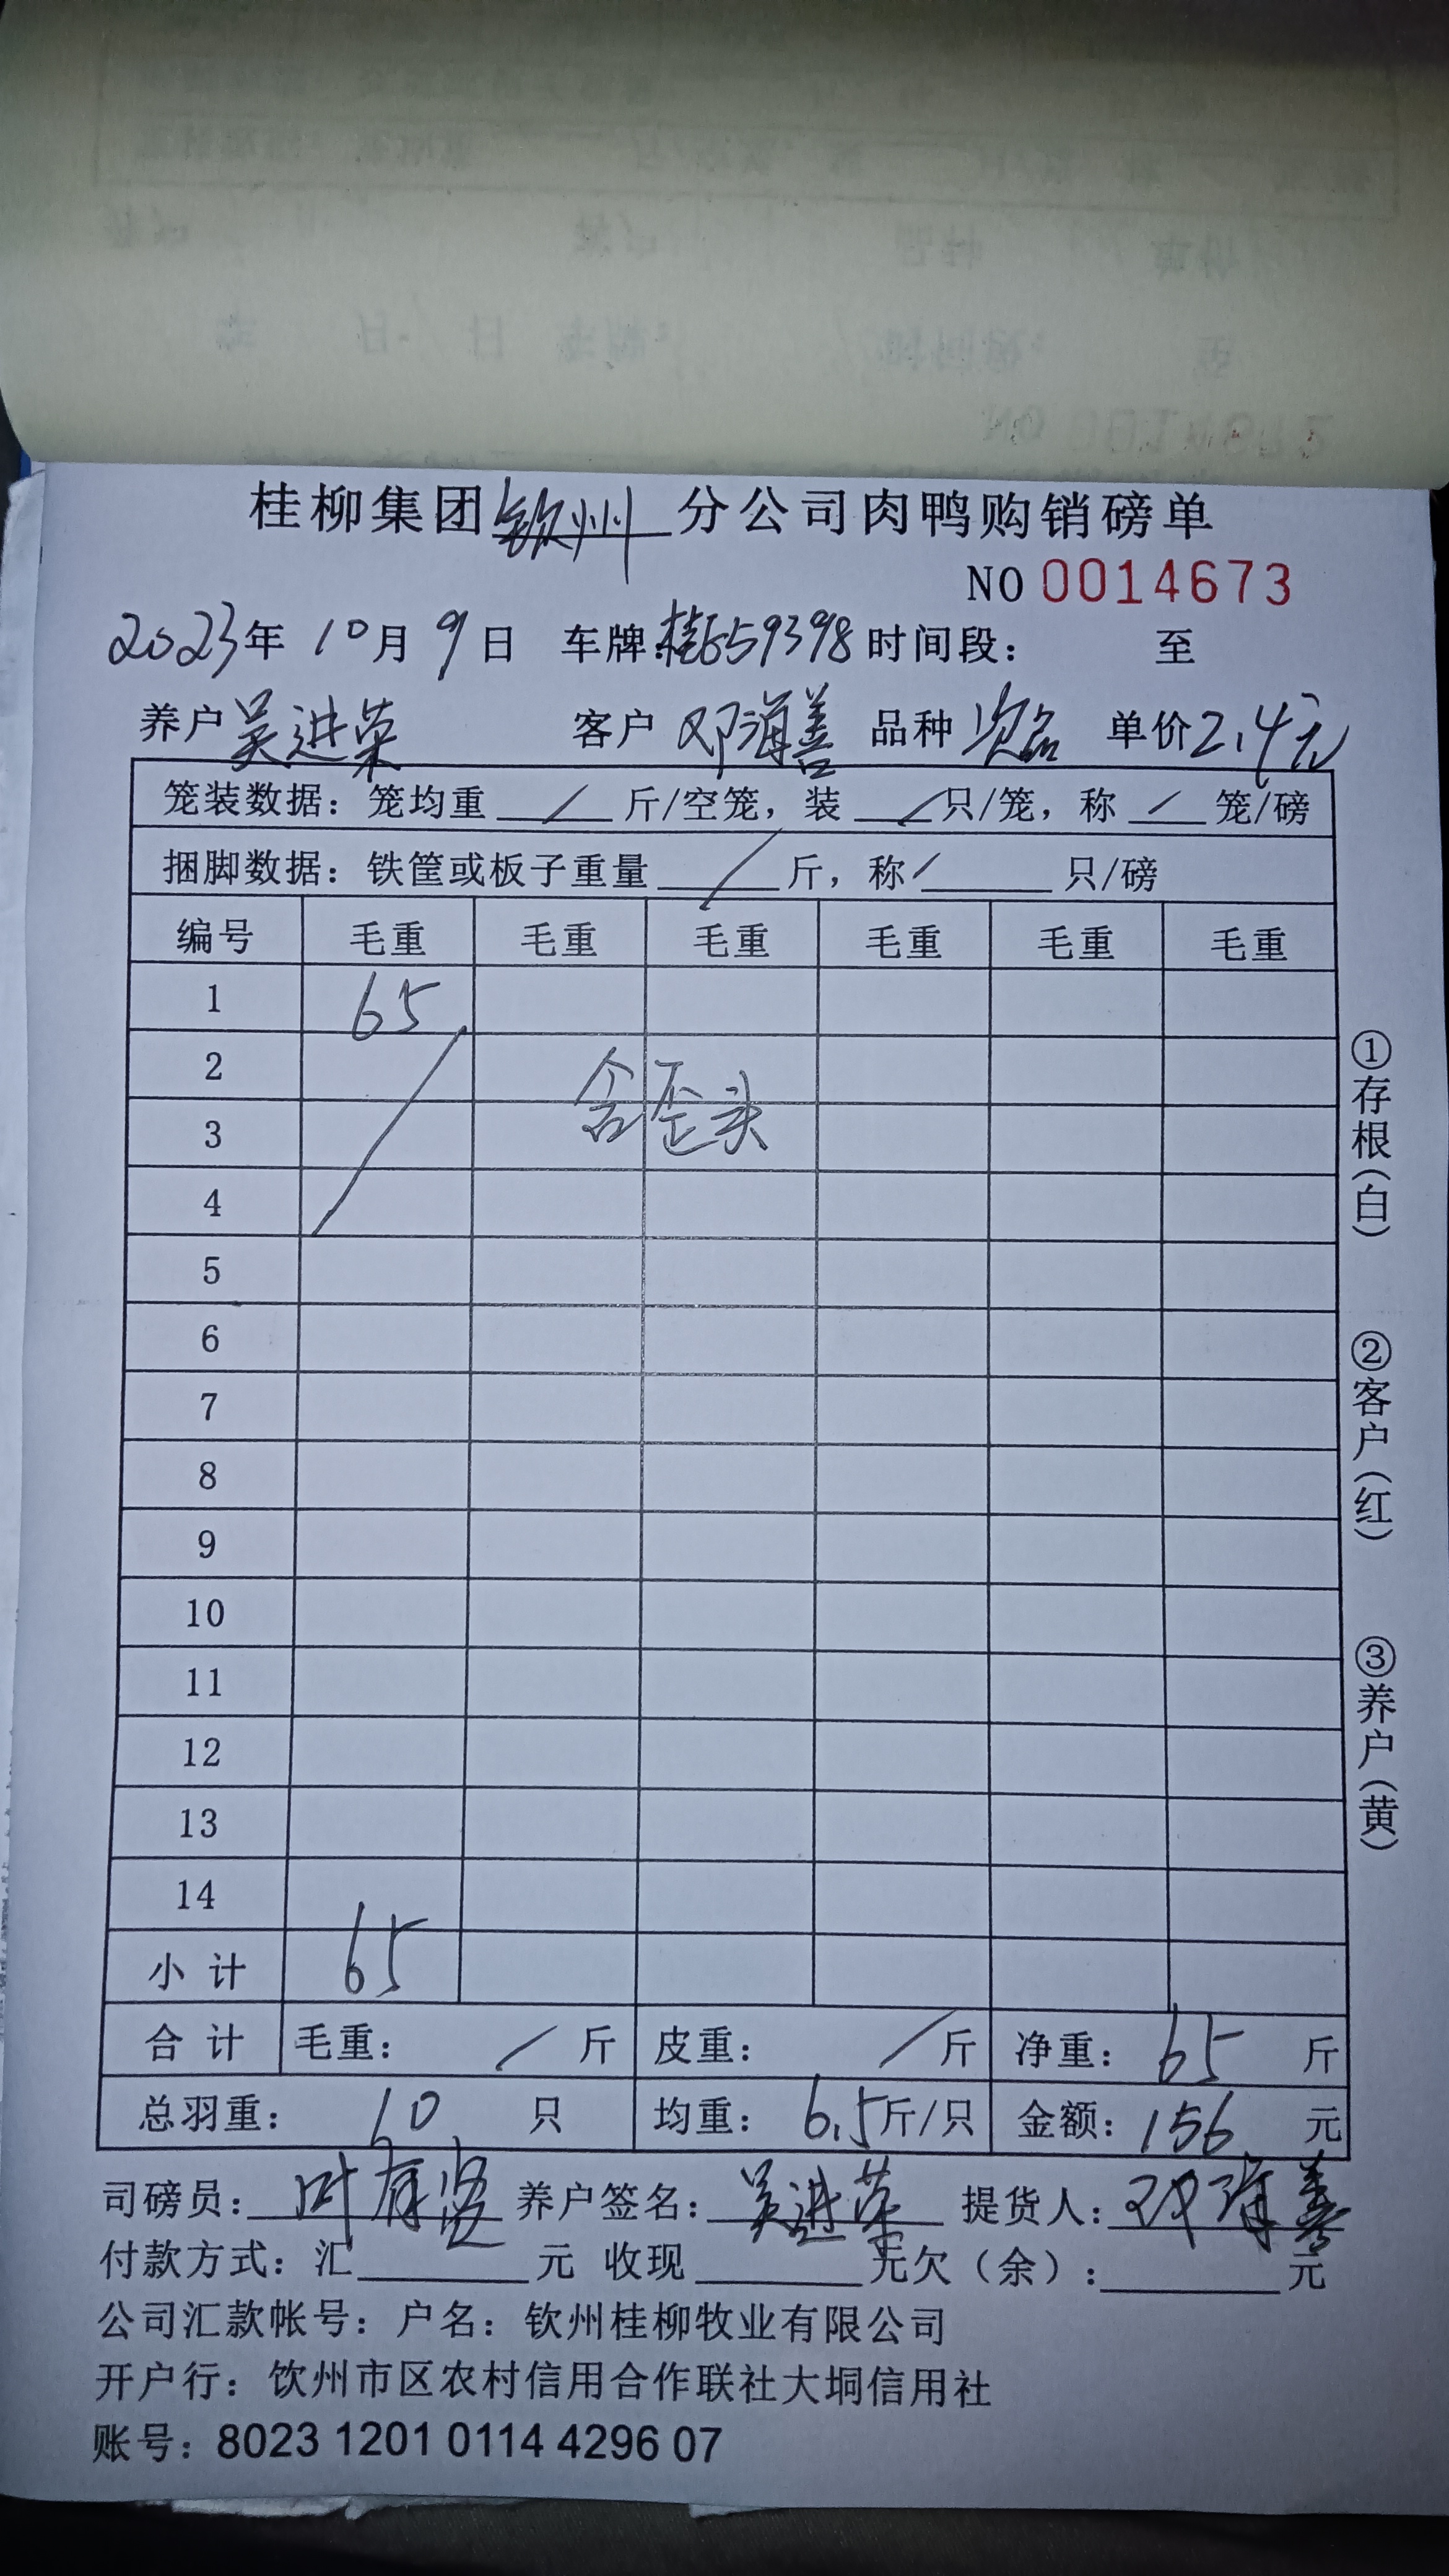 桂柳集团钦州分公司肉鸭购销磅单
NO 0014673
2023年 10月 9日 车牌:桂659398 时间段: 至
养户 吴进荣 客户 邓海善 品种 次品 单价 2.4元
笼装数据: 笼均重 / 斤/空笼, 装 / 只/笼, 称 / 笼/磅
捆脚数据: 铁筐或板子重量 / 斤, 称 / 只/磅
编号 毛重 毛重 毛重 毛重 毛重 毛重
1 65
2
含歪头
3
4
5
6
7
8
9
10
11
12
13
14
小计 65
合计 毛重: / 斤 皮重: / 斤 净重: 65 斤
总羽重: 10 只 均重: 6.5斤/只 金额: 156 元
司磅员: 叶有贤 养户签名: 吴进荣 提货人: 邓海善
付款方式: 汇 元 收现 元欠(余): 元
公司汇款帐号: 户名: 钦州桂柳牧业有限公司
开户行: 饮州市区农村信用合作联社大垌信用社
账号: 8023 1201 0114 4296 07
①存根(白)
②客户(红)
③养户(黄)